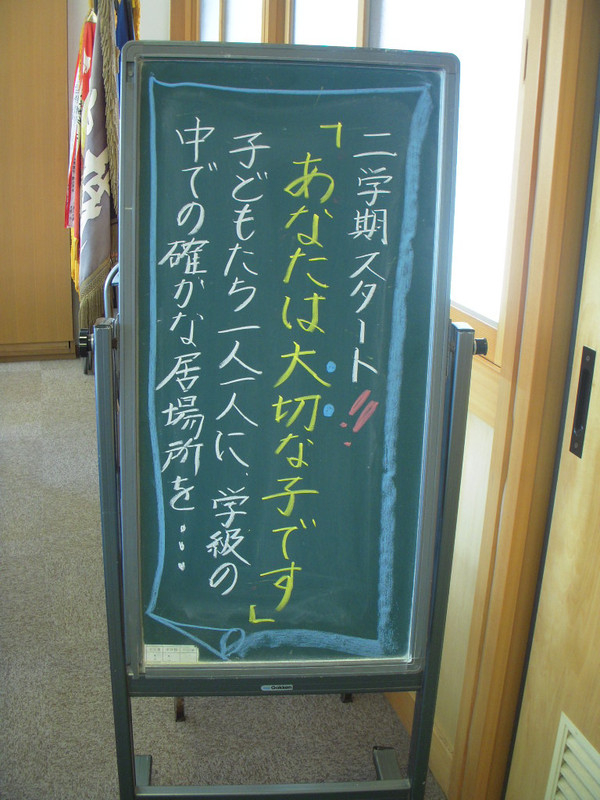 二学期スタート!!
「あなたは大切な子です」
子どもたち一人一人に、学級の
中での確かな居場所を…